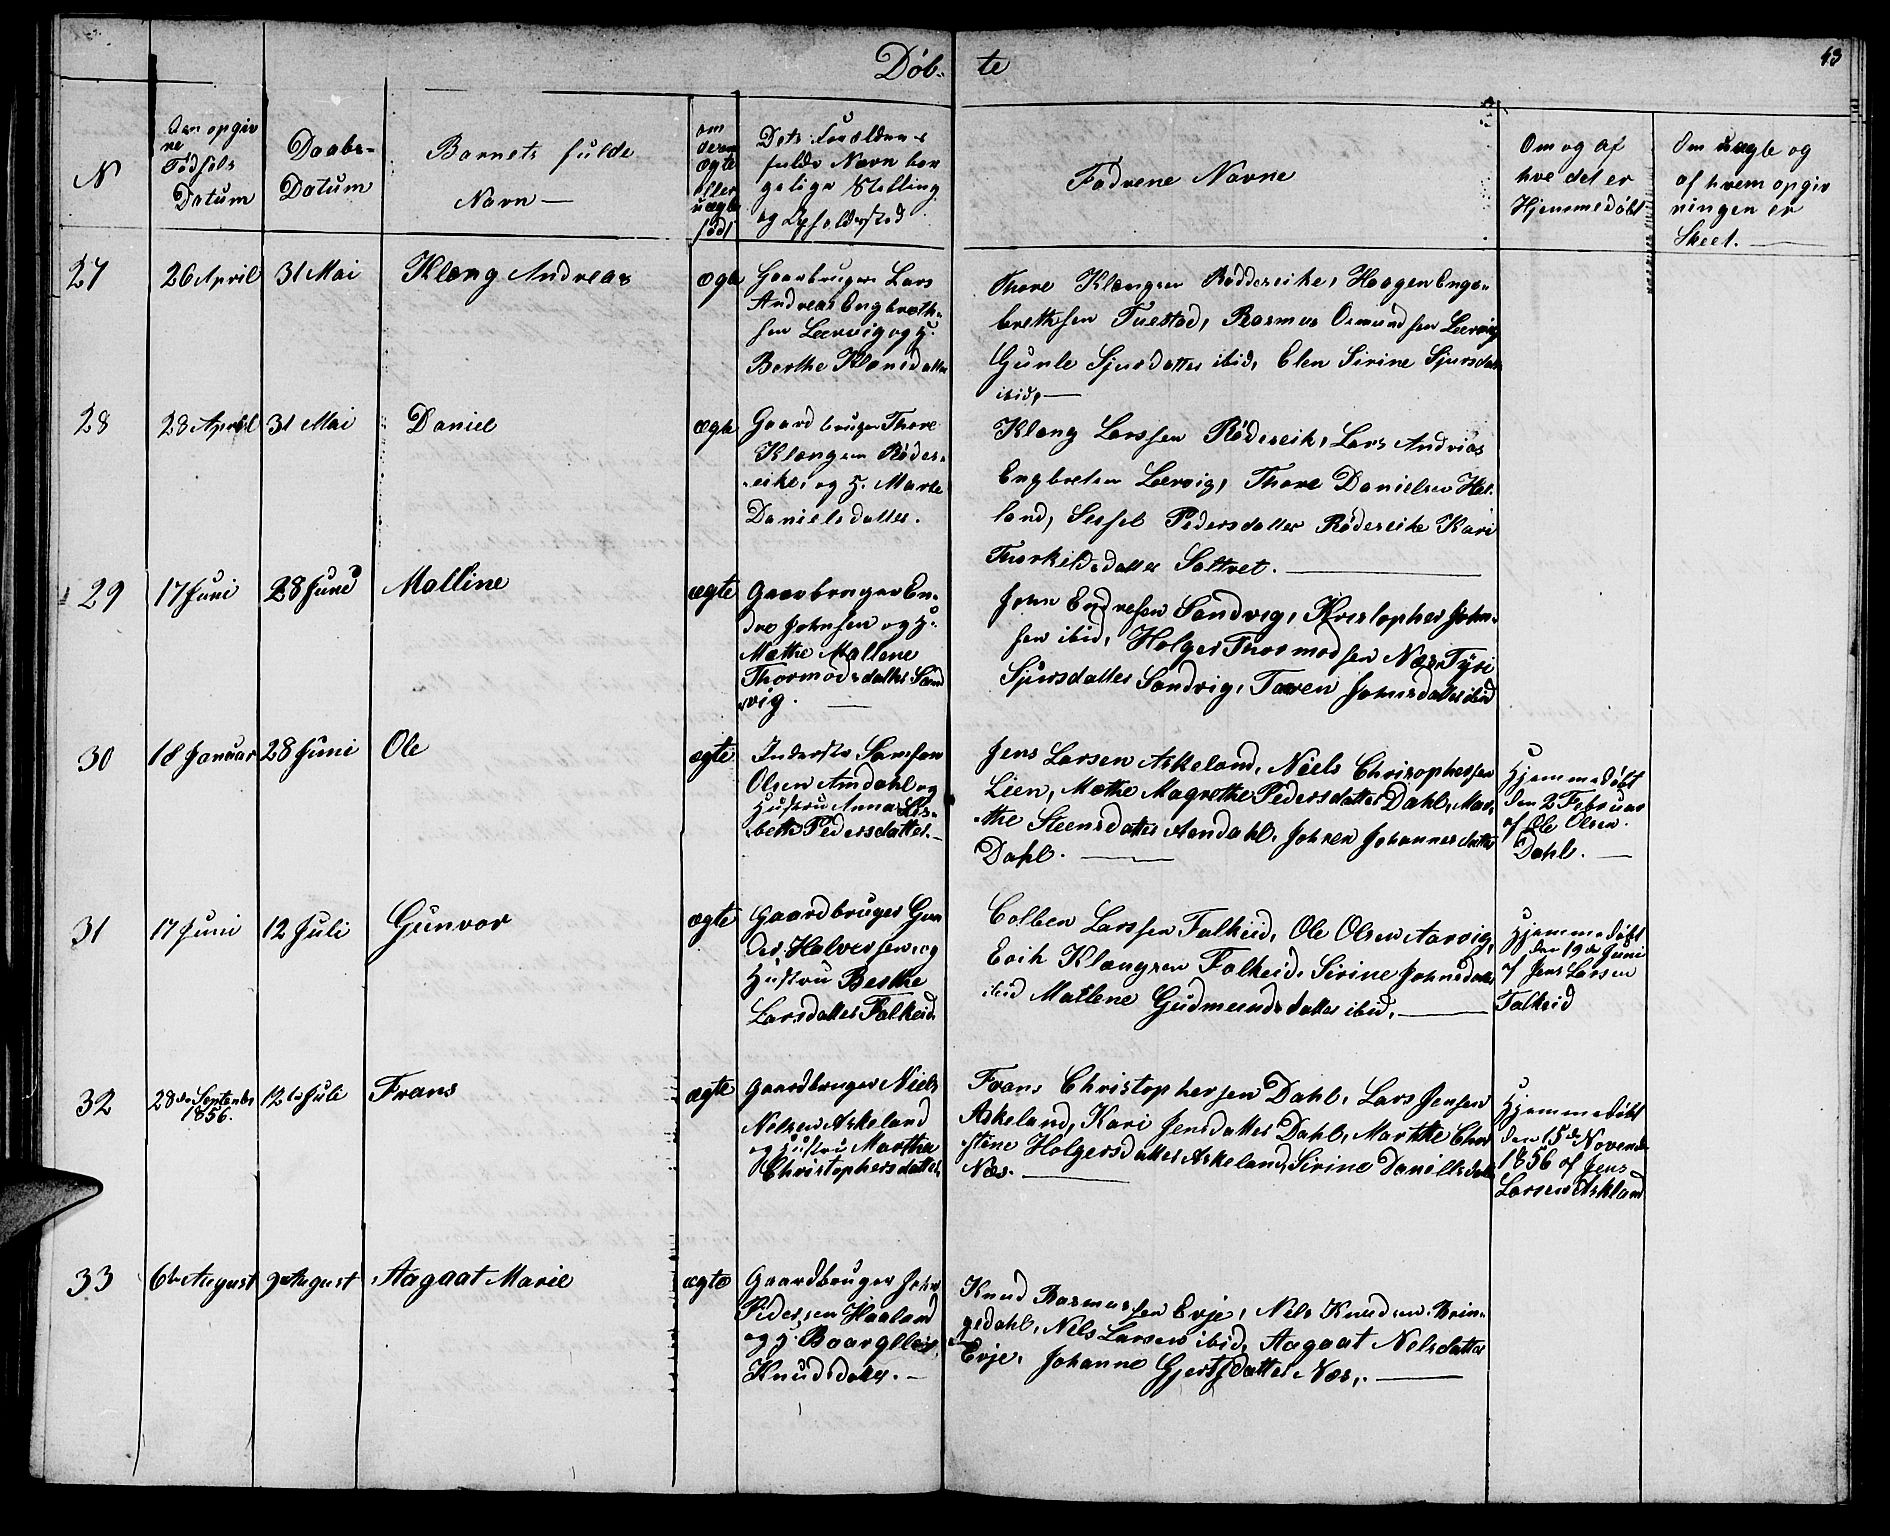 Døb- te
43
N
Den opgiv
ne
Fødsels
Datum
Daabs-
Datum
Barnets fulde
Navn —
om
deren
ægte
eller
uægte
født
Dets Forældres
fulde Navn bor
gelige Stelling
og Opholdssted
Fadrene Navne
Om og af
hve det er
Hjemmedøbt
Om uægte og
af hvem opgiv
ningen er
Skeet.
27
26 April
31 Mai
Klæng Andreas
ægte
Gaarbruger Lars
Andreas Engbreth-
sen Lervig og H.
Berthe Klænsdatter
Thore Klængsen Røddereike, Haagen Enge-
brethsen Tuestad, Rasmus Osmundsen Lervig
Gunle Sjursdatter ibid, Elen Sirine Sjursdatt
ibid, —
28
28 April
31 Mai
Daniel
ægte
Gaardbruger Thore
Klængsen Røder-
eike, og H. Marte
Danielsdatter.
Klæng Larssen Rødereike, Lars Andrias
Engbretsen Lervig, Thore Danielsen Het-
land, Sissel Pedersdatter Rødereike Kari
Thorkildsdatter Saltvet. —
29
17 Juni
28 Juni
Malline
ægte
Gaarbruger En-
dre Johnsen og H.
Mathe Mallene
Thormodsdatter Sand
vig. —
John Endresen Sandvig, Kristopher John-
sen ibid, Holger Thormodsen Næs Tyri
Sjursdatter Sandvig, Taren Johnsdatter ibid
30
18 Januar
28 Juni
Ole
ægte
Inderste Samson
Olsen Amdahl og
Hustru Anna Lis-
beth Pedersdatter. —
Jens Larsen Askeland, Niels Chrisophersen
Lien, Mathe Magrethe Pedersdatter Dahl, Mar-
the Steensdatter Amdahl, Johren Johannesdatter
Dahl. —
Hjemmedøbt
den 2 Februar
af Ole Olsen
Dahl. —
31
17 Juni
12 Juli
Gunvor
ægte
Gaardbruger Gun
der Halversen og
Hustru Berthe
Larsdatter Falkeid.
Colben Larssen Falkeid, Ole Olsen Aarvig,
Erik Klængsen Falkeid, Sirine Johnsdatter
ibid Mallene Gudmundsdatter ibid, —
Hjemmedøbt
den 19de Juni
af Jens Larsen
Falkeid
32
28de September
1856.
12te Juli
Frans
ægte
Gaardbruger Niels
Nelsen Askeland
og Hustru Marthe
Christophersdatter.
Frans Christophersen Dahl, Lars Jensen
Askeland, Kari Jensdatter Dahl, Marthe Chri
stene Holgersdatter Askeland, Sirine Danielsdatt
Næs. —
Hjemmedøbt
den 15de Novemb
1856 af Jens
Larsen Askland
33
6te August
9de August
Aagaat Marie
ægte
Gaardbruger John
Pedersen Haaland
og H.
Knudsdater. —
Knud Rasmussen Evje, Nels Knudsen Brin-
gedahl, Nels Larsen ibid, Aagaat Nelsdatter
Evje, Johanne Gjertsdatter Næs, —